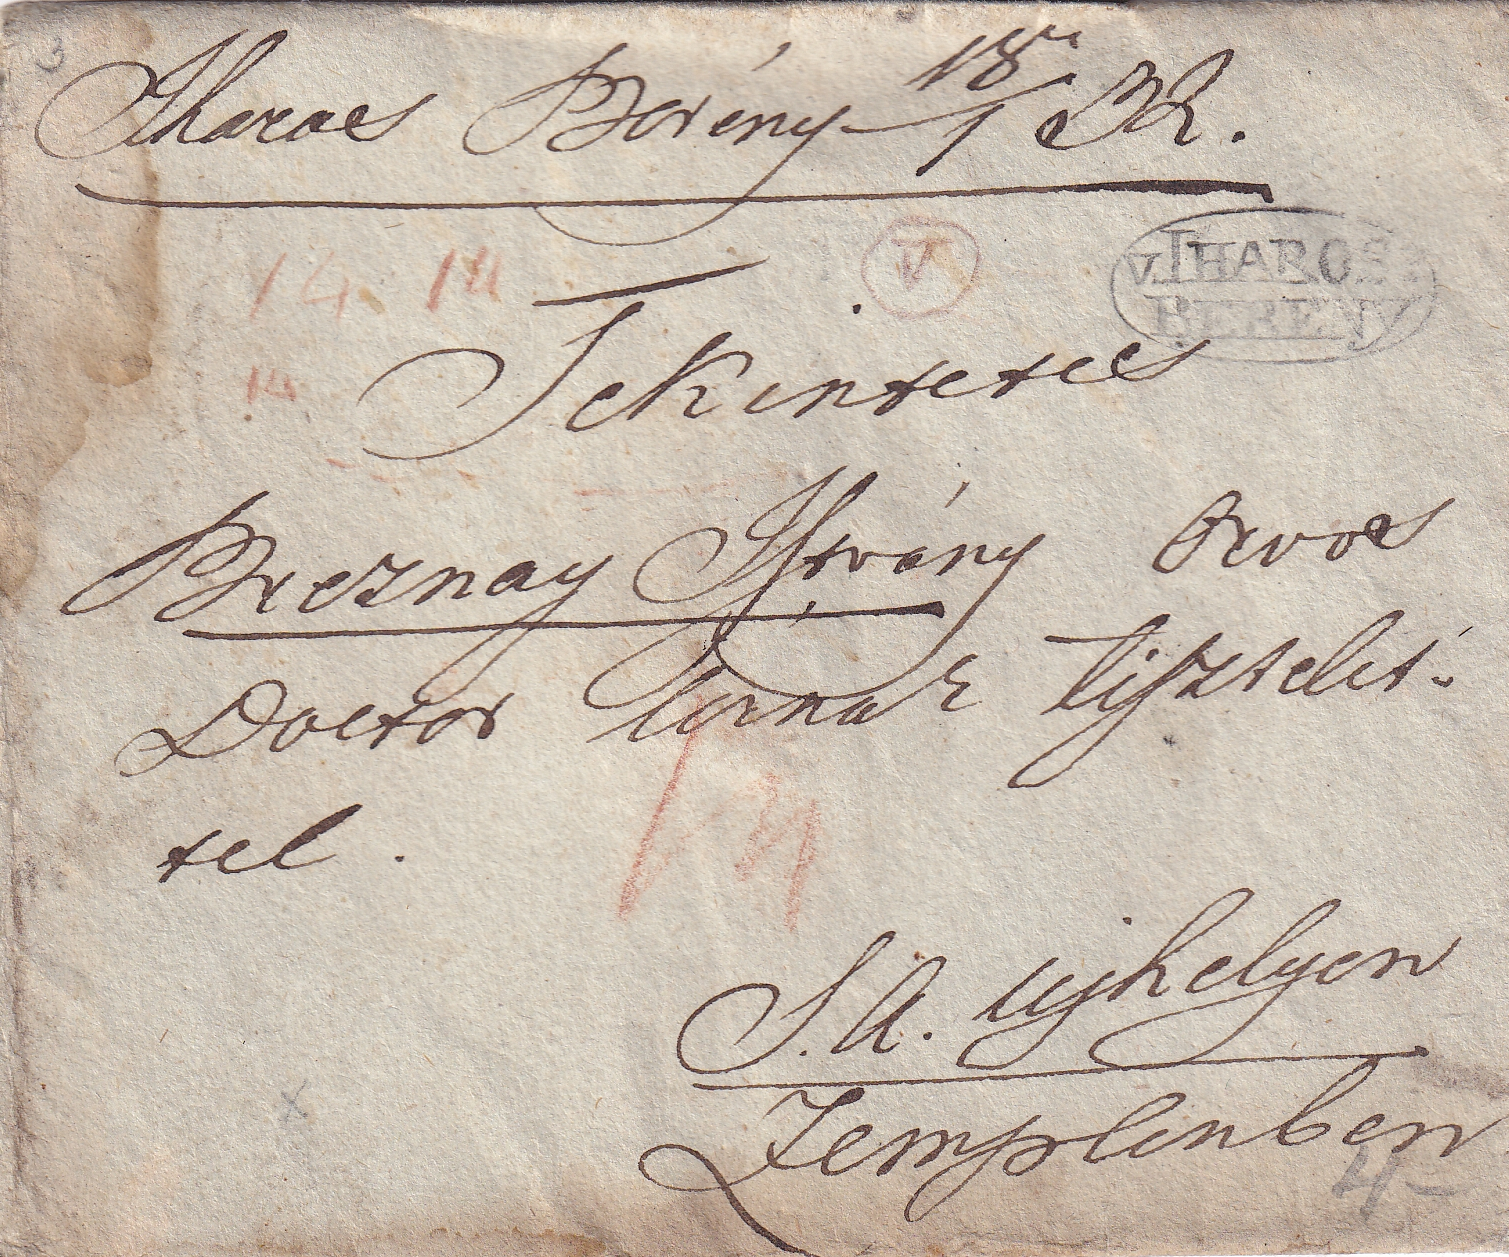 3
Iharos Berény 18 1/e 32.
V
v. IHAROS
BERENY
14 14
14
Tekintetes
Breznay Istvány Orvos
Doctor Urnak tisztelet-
tel.
S. A. Ujhelyen
Zemplinben